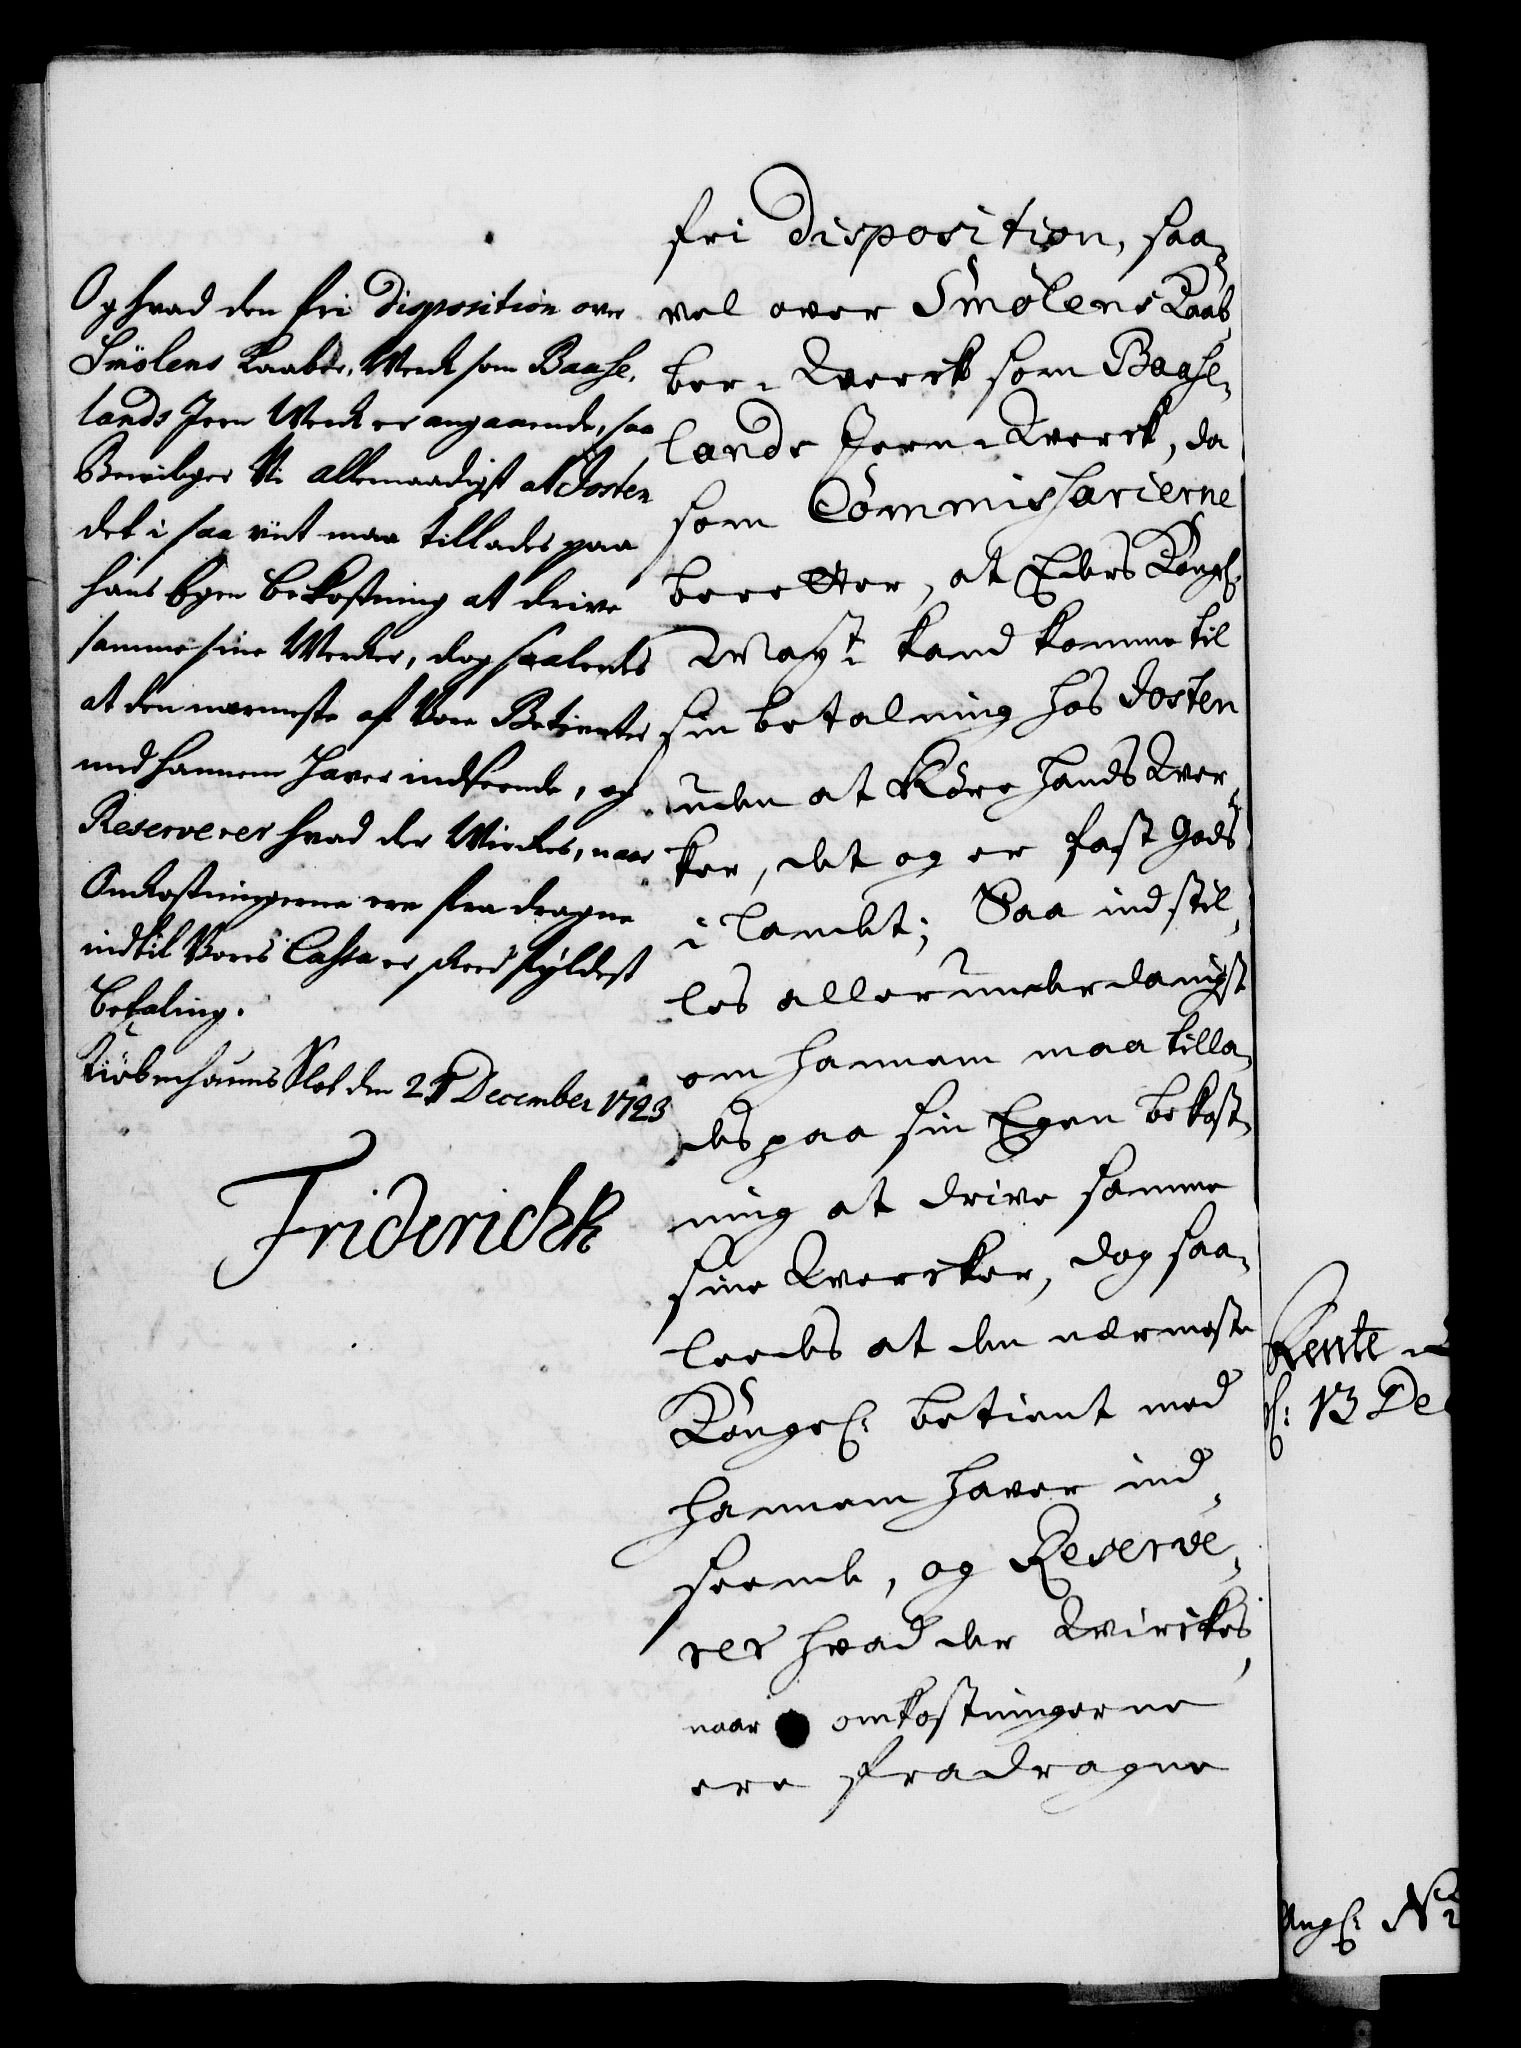 Og hvad den fri Disposition over
Smölens Kaaber-Werck som Baase-
lands Jern Werck er angaaende, saa
Bevilger Vi allernaadigst at Josten
det i saa viit maa tillades paa
hans Egen bekostning at drive
samme sine Wercker, dog saaledes
at den nærmeste af Vore Betienter
med hannem haver indseende, og
Reserverer hvad der Wirckes, naar
Omkostningerne ere fradragne
indtil Vores Cassa er skeed fyldest
betaling.
Kiöbenhauns Slot den 21 December 1723
Friderich R
fri Disposition, saa-
vel over Smölens Kaab
ber-Werck som Baase-
lands Jern-Werck, da
som Commissarierne
beretter, at Eders Kongl:
Mayt: kand komme til
sin betalning hos Josten
uden at röre hands Wer
ker, det og er fast Gods
i landet; Saa indstil-
les allerunderdanigst
om hannem maa tilla-
des paa sin Egen bekost-
ning at drive samme
sine Wercker, dog saa-
leedes at den nærmeste
Kongel: betient med
hannem haver ind-
seende, og Reserve-
rer hvad der Wirckes,
naar omkostningerne
ere fradragne
Rente
13 De
Angl: No